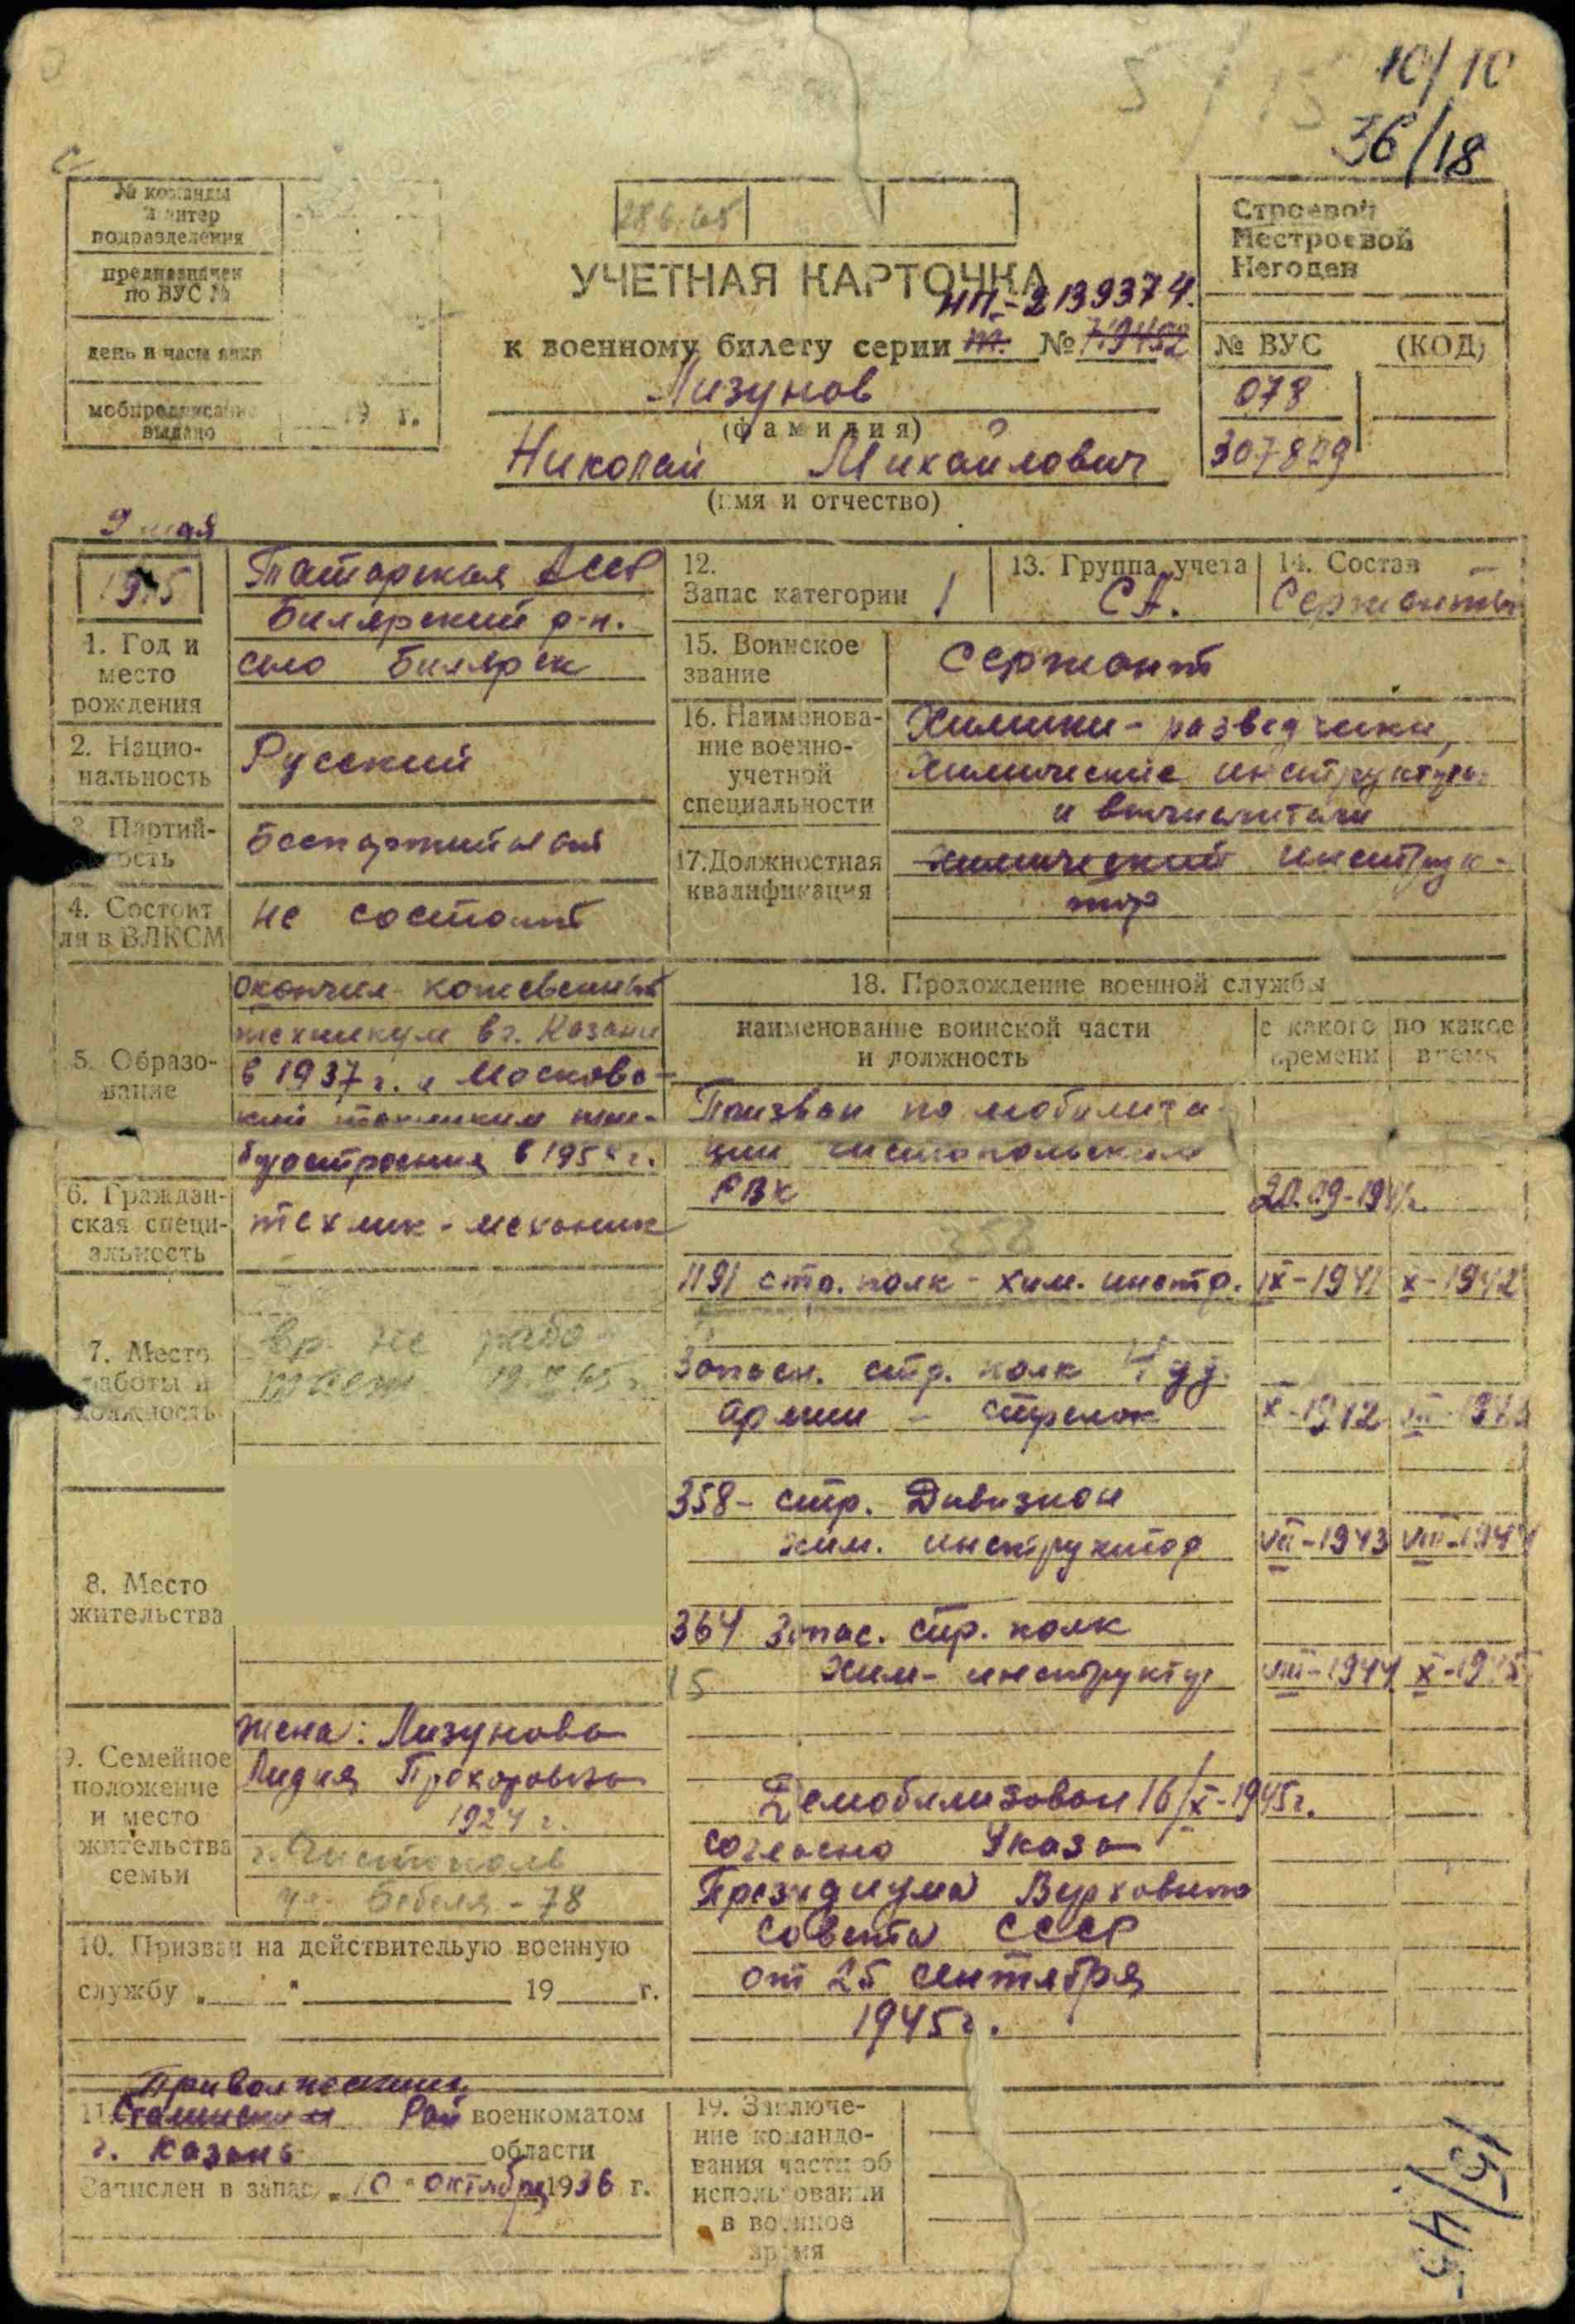 10/10
36/18
№ команды
и литер
подразделения
предназначен
по ВУС №
день и часы явки
мобпредписание
выдано
19 г.
286.65
УЧЕТНАЯ КАРТОЧКА
НП-2139374.
к военному билету серии №
Лизунов
(фамилия)
Николай Михайлович
(имя и отчество)
Строевой
Нестроевой
Негоден
№ ВУС (КОД)
078
307809
9 мая
1. Год и
место
рождения
Татарская АССР
Билярский р-н.
село Билярск
2. Нацио-
нальность
Русский
3. Партий-
ность
Беспартийный
4. Состоит
ли в ВЛКСМ
не состоит
5. Образо-
вание
окончил кожевенный
техникум в г. Казани
в 1937 г. и Московс-
кий
в 195 г.
6. Граждан-
ская специ-
альность
техник-механик
7. Место
работы и
должность
вр. не рабо
тает
8. Место
жительства
9. Семейное
положение
и место
жительства
семьи
жена: Лизунова
Лидия Прохоровна
1924 г.
г. Чистополь
ул. Бебеля - 78
10. Призван на действительую военную
службу " " 19 г.
Приволжским
11. Сталинским Рай военкоматом
г. Казань области
Зачислен в запас "10" октября 1936 г.
12.
Запас категории 1
13. Группа учета
СА.
14. Состав
Сержанты
15. Воинское
звание
Сержант
16. Наименова-
ние военно-
учетной
специальности
Химики-разведчики,
химические инструкторы
и
17. Должностная
квалификация
химический инструк-
тор
18. Прохождение военной службы
наименование воинской части
и должность
с какого
времени
по какое
время
Призван по мобилиза-
ции Чистопольским
РВК 20.09-1941г.
358
1191 стр. полк - хим. инстр. IX-1941 X-1942
Запасн. стр. полк 4 уд.
армии - стрелок X-1942 VII-1943
358- стр. Дивизион
хим. инструктор VII-1943 VIII-1944
364 Запас. стр. полк
15 хим- инструктор VIII-1944 X-1945
Демобилизован 16/X-1945г.
согласно Указа
Президиума Верховного
Совета СССР
от 25 сентября
1945г.
19. Заключе-
ние командо-
вания части об
использовании
в военное
время